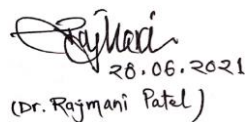 RajMani
28.06.2021
(Dr. Rajmani Patel)